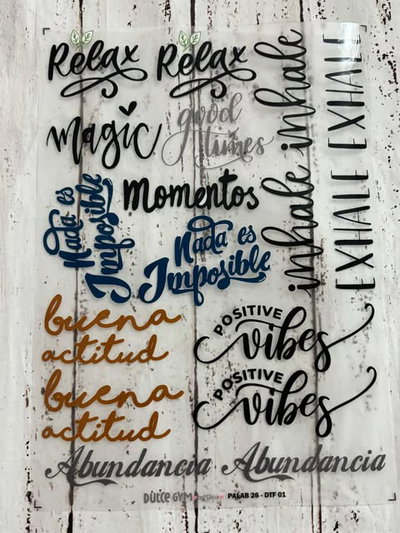 Relax
Relax
inhale inhale
EXHALE EXHALE
magic
good
times
Momentos
Nada es
Imposible
Nada es
Imposible
buena
actitud
POSITIVE
vibes
buena
actitud
POSITIVE
vibes
Abundancia
Abundancia
DULCE GYM
PALAB 26 - DTF 01